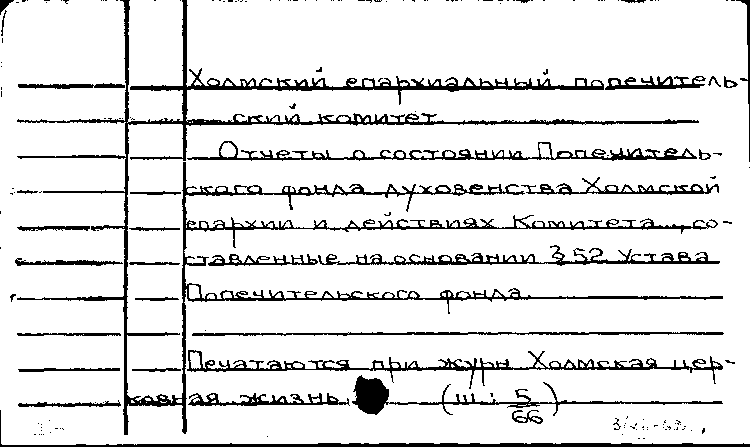 Холмский епархиальный попечитель-
ский комитет
Отчеты о состоянии Попечитель-
ского фонда духовенства Холмской
епархии и действиях Комитета, со-
ставленные на основании § 52 Устава
Попечительского фонда.
Печатаются при журн Холмская цер-
ковная жизнь (Ш: 5/66)